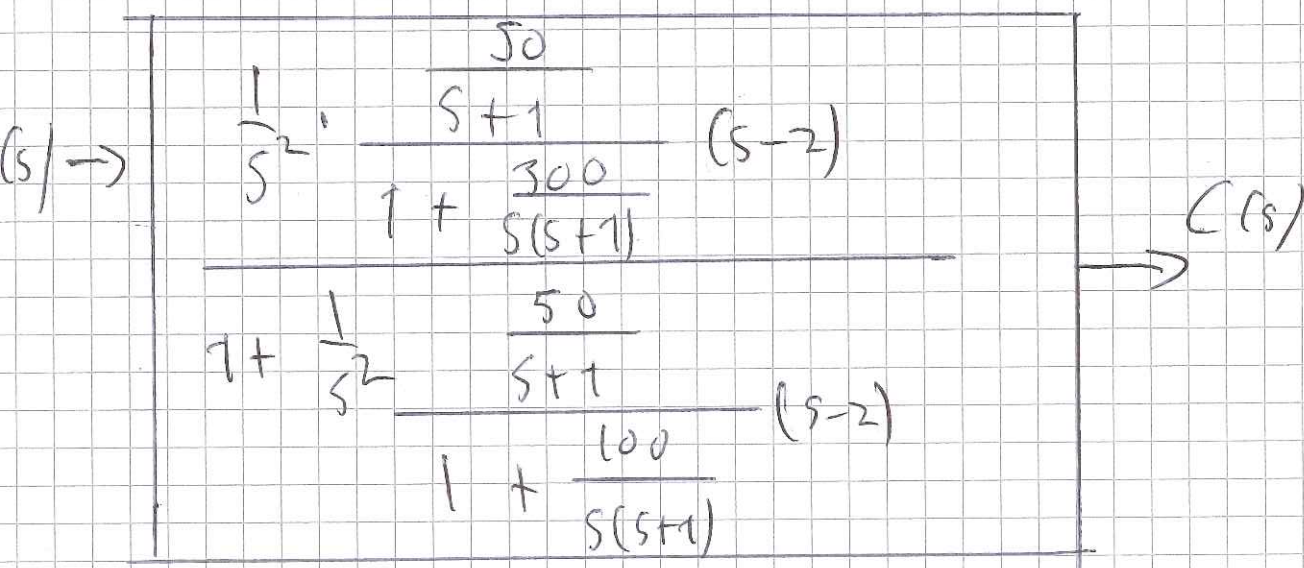 (s) → \frac{\frac{1}{s^2} \cdot \frac{\frac{50}{s+1}}{1 + \frac{300}{s(s+1)}} (s-2)}{1 + \frac{1}{s^2} \frac{\frac{50}{s+1}}{1 + \frac{100}{s(s+1)}} (s-2)} → C(s)